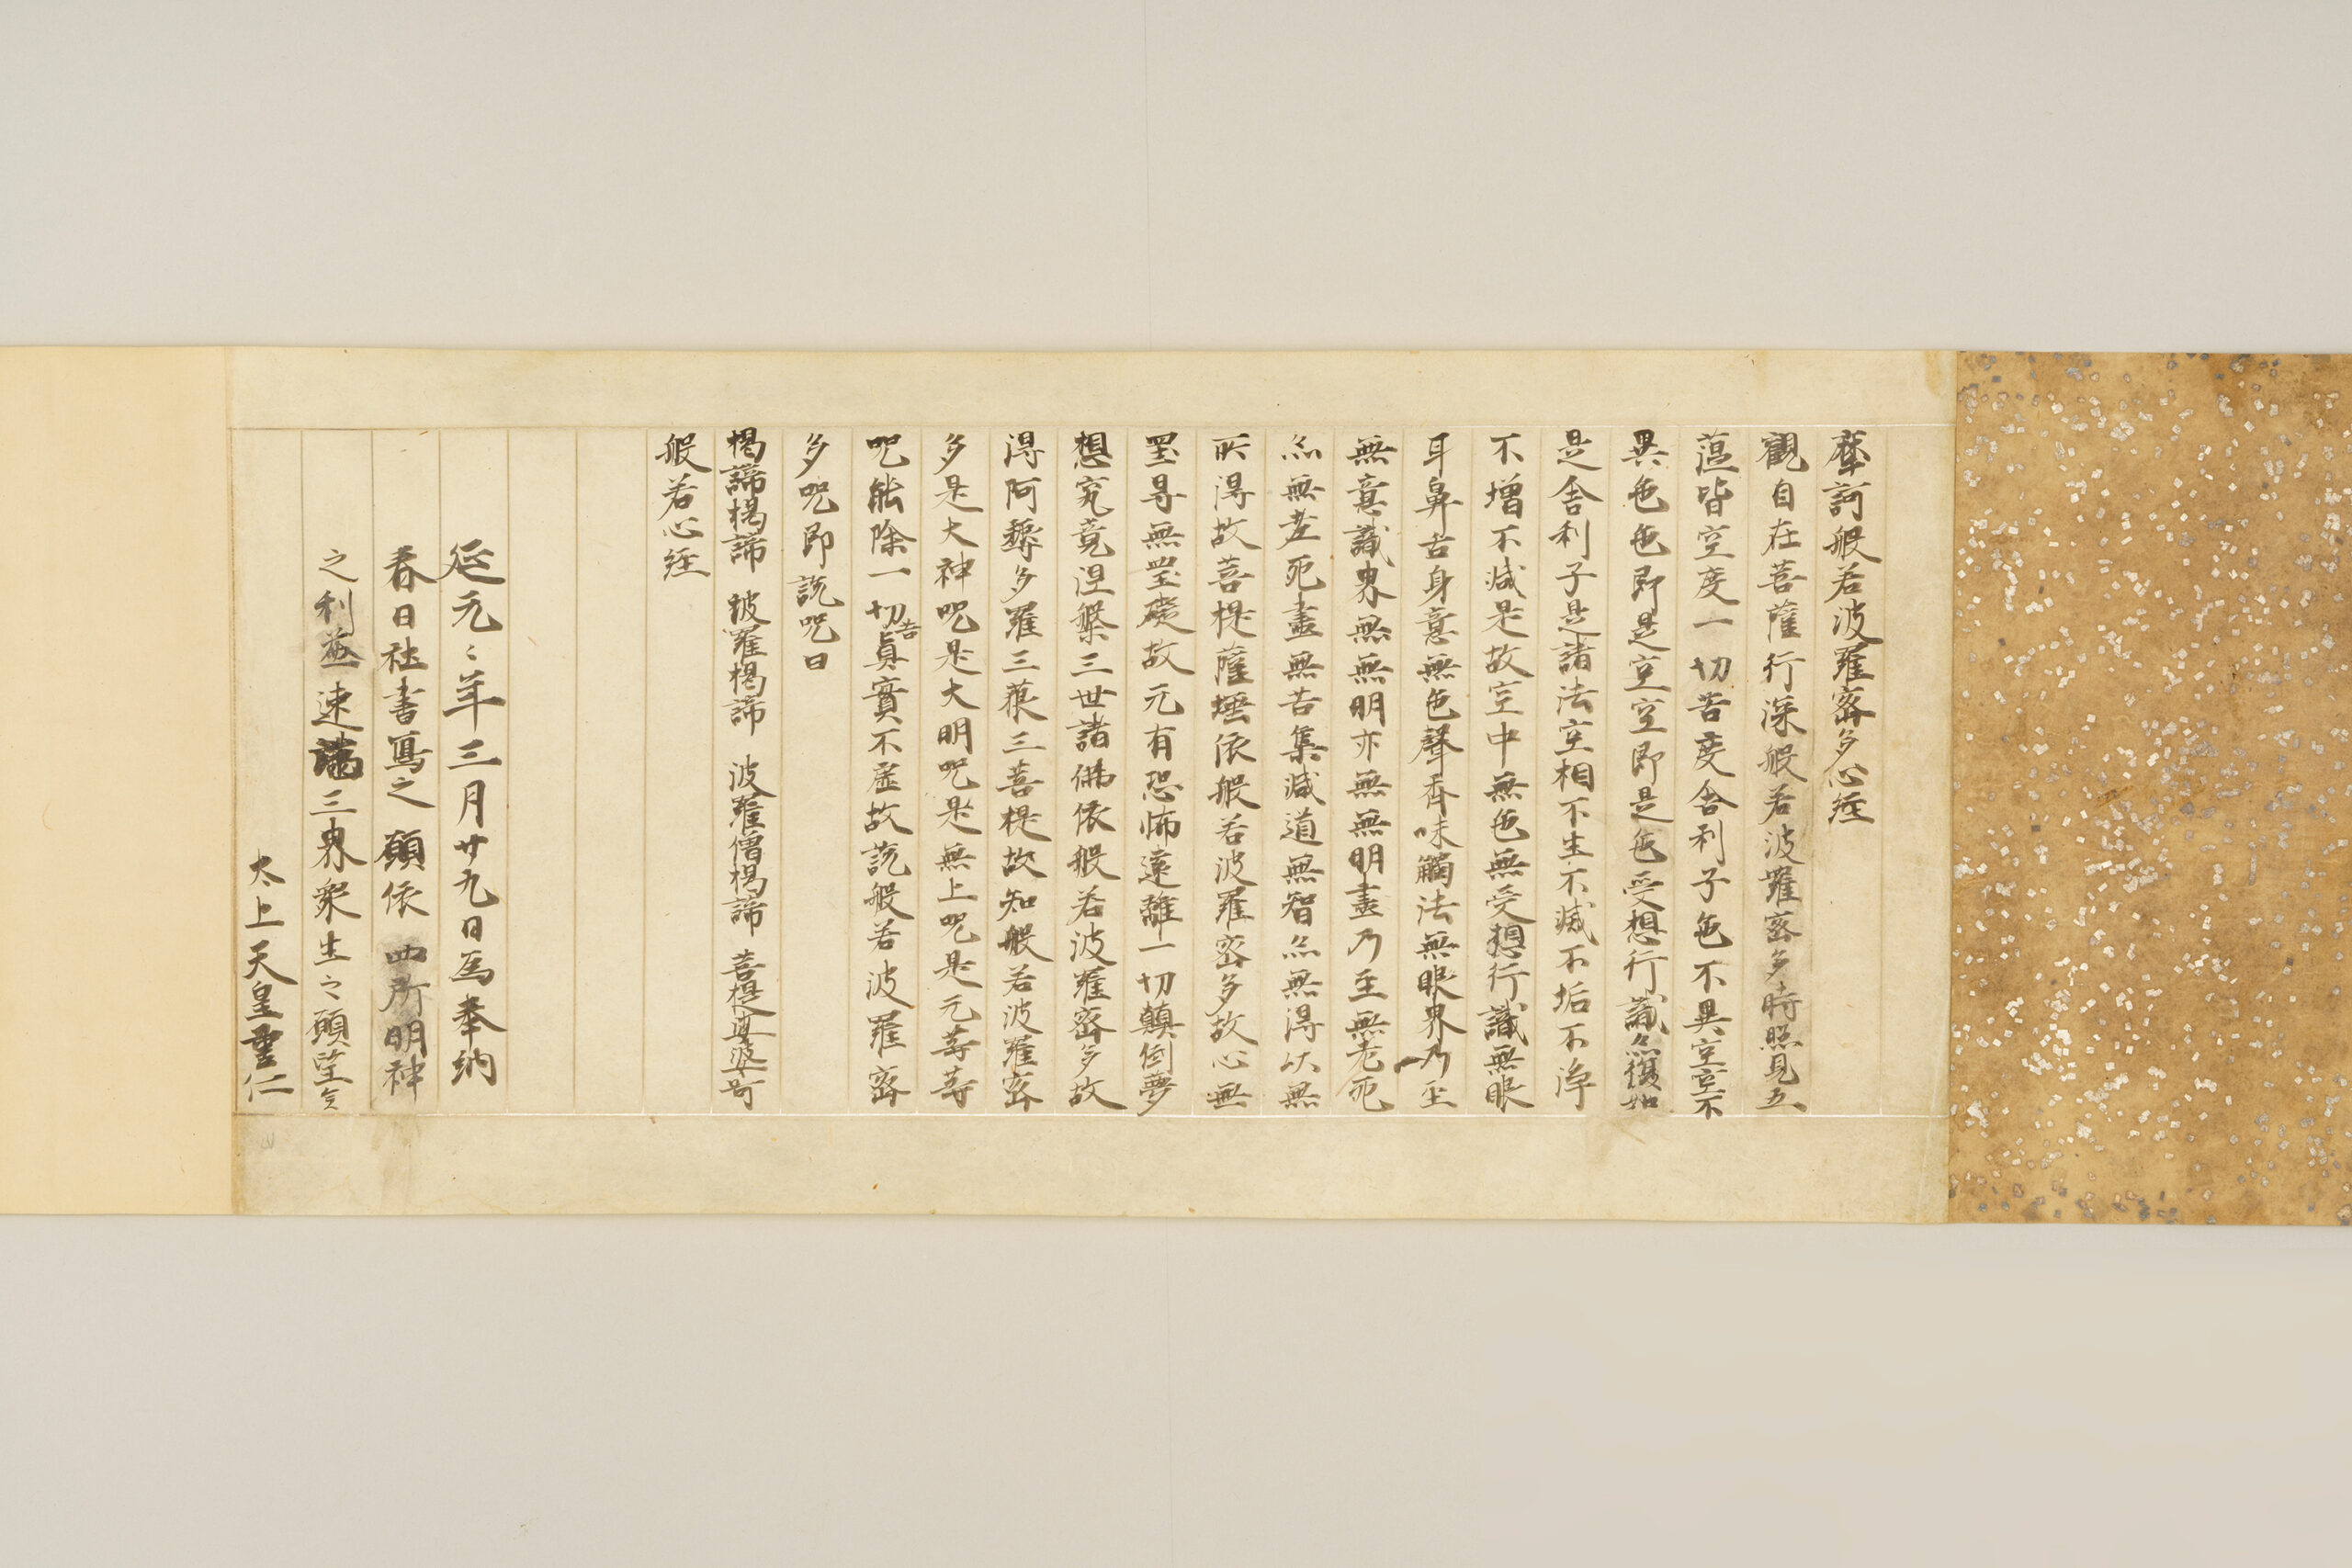 摩訶般若波羅蜜多心経
觀自在菩薩行深般若波羅蜜多時照見五
蘊皆空度一切苦度舎利子色不異空空不
異色色即是空空即是色受想行識亦復如
是舎利子是諸法空相不生不滅不垢不淨
不増不減是故空中無色無受想行識無眼
耳鼻舌身意無色聲香味觸法無眼界乃至
無意識界無無明亦無無明盡乃至無老死
亦無老死盡無苦集滅道無智亦無得以無
所得故菩提薩埵依般若波羅蜜多故心無
罣㝵無罣礙故无有恐怖遠離一切顛倒夢
想究竟涅槃三世諸佛依般若波羅蜜多故
得阿耨多羅三藐三菩提故知般若波羅蜜
多是大神呪是大明呪是無上呪是无等等
呪能除一切苦真實不虚故説般若波羅蜜
多呪即説呪曰
掲諦掲諦 波羅掲諦 波羅僧掲諦 菩提莎婆訶
般若心経
延元〻年三月廿九日為奉納
春日社書寫之 願依 四所明神
之利益速満三界衆生之願望矣
太上天皇量仁